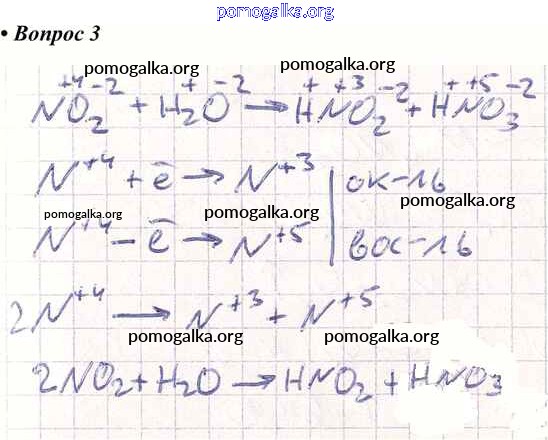 pomogalka.org
• Вопрос 3
pomogalka.org pomogalka.org
N⁺⁴O₂⁻² + H₂⁺O⁻² → H⁺N⁺³O₂⁻² + H⁺N⁺⁵O₃⁻²
N⁺⁴ + ē → N⁺³ | ок-ль
pomogalka.org pomogalka.org pomogalka.org
N⁺⁴ - ē → N⁺⁵ | вос-ль
2N⁺⁴ → N⁺³ + N⁺⁵
pomogalka.org pomogalka.org
2NO₂ + H₂O → HNO₂ + HNO₃